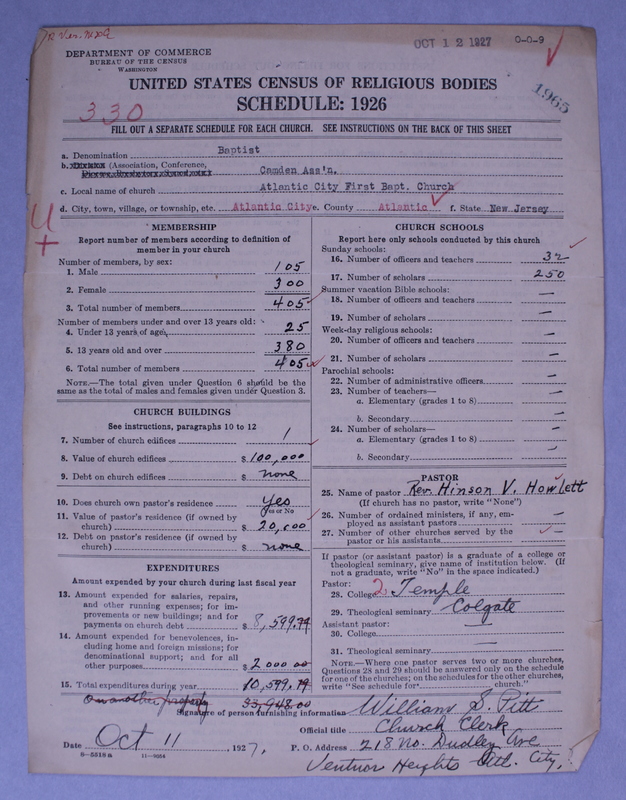 OCT 12 1927
0-0-9
1965
DEPARTMENT OF COMMERCE
BUREAU OF THE CENSUS
WASHINGTON
UNITED STATES CENSUS OF RELIGIOUS BODIES
330
SCHEDULE: 1926
FILL OUT A SEPARATE SCHEDULE FOR EACH CHURCH. SEE INSTRUCTIONS ON THE BACK OF THIS SHEET
a. Denomination Baptist
b. (Association, Conference, Camden Ass'n.
c. Local name of church Atlantic City First Bapt. Church
d. City, town, village, or township, etc. Atlantic City e. County Atlantic f. State New Jersey
MEMBERSHIP
Report number of members according to definition of
member in your church
Number of members, by sex:
1. Male 105
2. Female 300
3. Total number of members 405
Number of members under and over 13 years old:
4. Under 13 years of age 25
5. 13 years old and over 380
6. Total number of members 405
NOTE.—The total given under Question 6 should be the
same as the total of males and females given under Question 3.
CHURCH BUILDINGS
See instructions, paragraphs 10 to 12
7. Number of church edifices 1
8. Value of church edifices $ 100,000
9. Debt on church edifices $ none
10. Does church own pastor's residence yes
Yes or No
11. Value of pastor's residence (if owned by
church) $ 20,000
12. Debt on pastor's residence (if owned by
church) $ none
EXPENDITURES
Amount expended by your church during last fiscal year
13. Amount expended for salaries, repairs,
and other running expenses; for im-
provements or new buildings; and for
payments on church debt $ 8,599.79
14. Amount expended for benevolences, in-
cluding home and foreign missions; for
denominational support; and for all
other purposes $ 2000 00
15. Total expenditures during year 10,599.79
CHURCH SCHOOLS
Report here only schools conducted by this church
Sunday schools:
16. Number of officers and teachers 32
17. Number of scholars 250
Summer vacation Bible schools:
18. Number of officers and teachers —
19. Number of scholars —
Week-day religious schools:
20. Number of officers and teachers —
21. Number of scholars —
Parochial schools:
22. Number of administrative officers —
23. Number of teachers—
a. Elementary (grades 1 to 8) —
b. Secondary —
24. Number of scholars—
a. Elementary (grades 1 to 8) —
b. Secondary
PASTOR
25. Name of pastor Rev. Hinson V. Howlett
(If church has no pastor, write "None")
26. Number of ordained ministers, if any, em-
ployed as assistant pastors —
27. Number of other churches served by the
pastor or his assistants —
If pastor (or assistant pastor) is a graduate of a college or
theological seminary, give name of institution below. (If
not a graduate, write "No" in the space indicated.)
Pastor:
28. College 2 Temple
29. Theological seminary Colgate
Assistant pastor:
30. College —
31. Theological seminary —
NOTE.—Where one pastor serves two or more churches,
Questions 28 and 29 should be answered only on the schedule
for one of the churches; on the schedules for the other churches,
write "See schedule for church."
on another property 33,948.00
Signature of person furnishing information William S. Pitt
Official title Church Clerk
Date Oct 11, 1927. P. O. Address 218 No. Dudley Ave
Ventnor Heights Atl. City.
8—5518a 11—9054